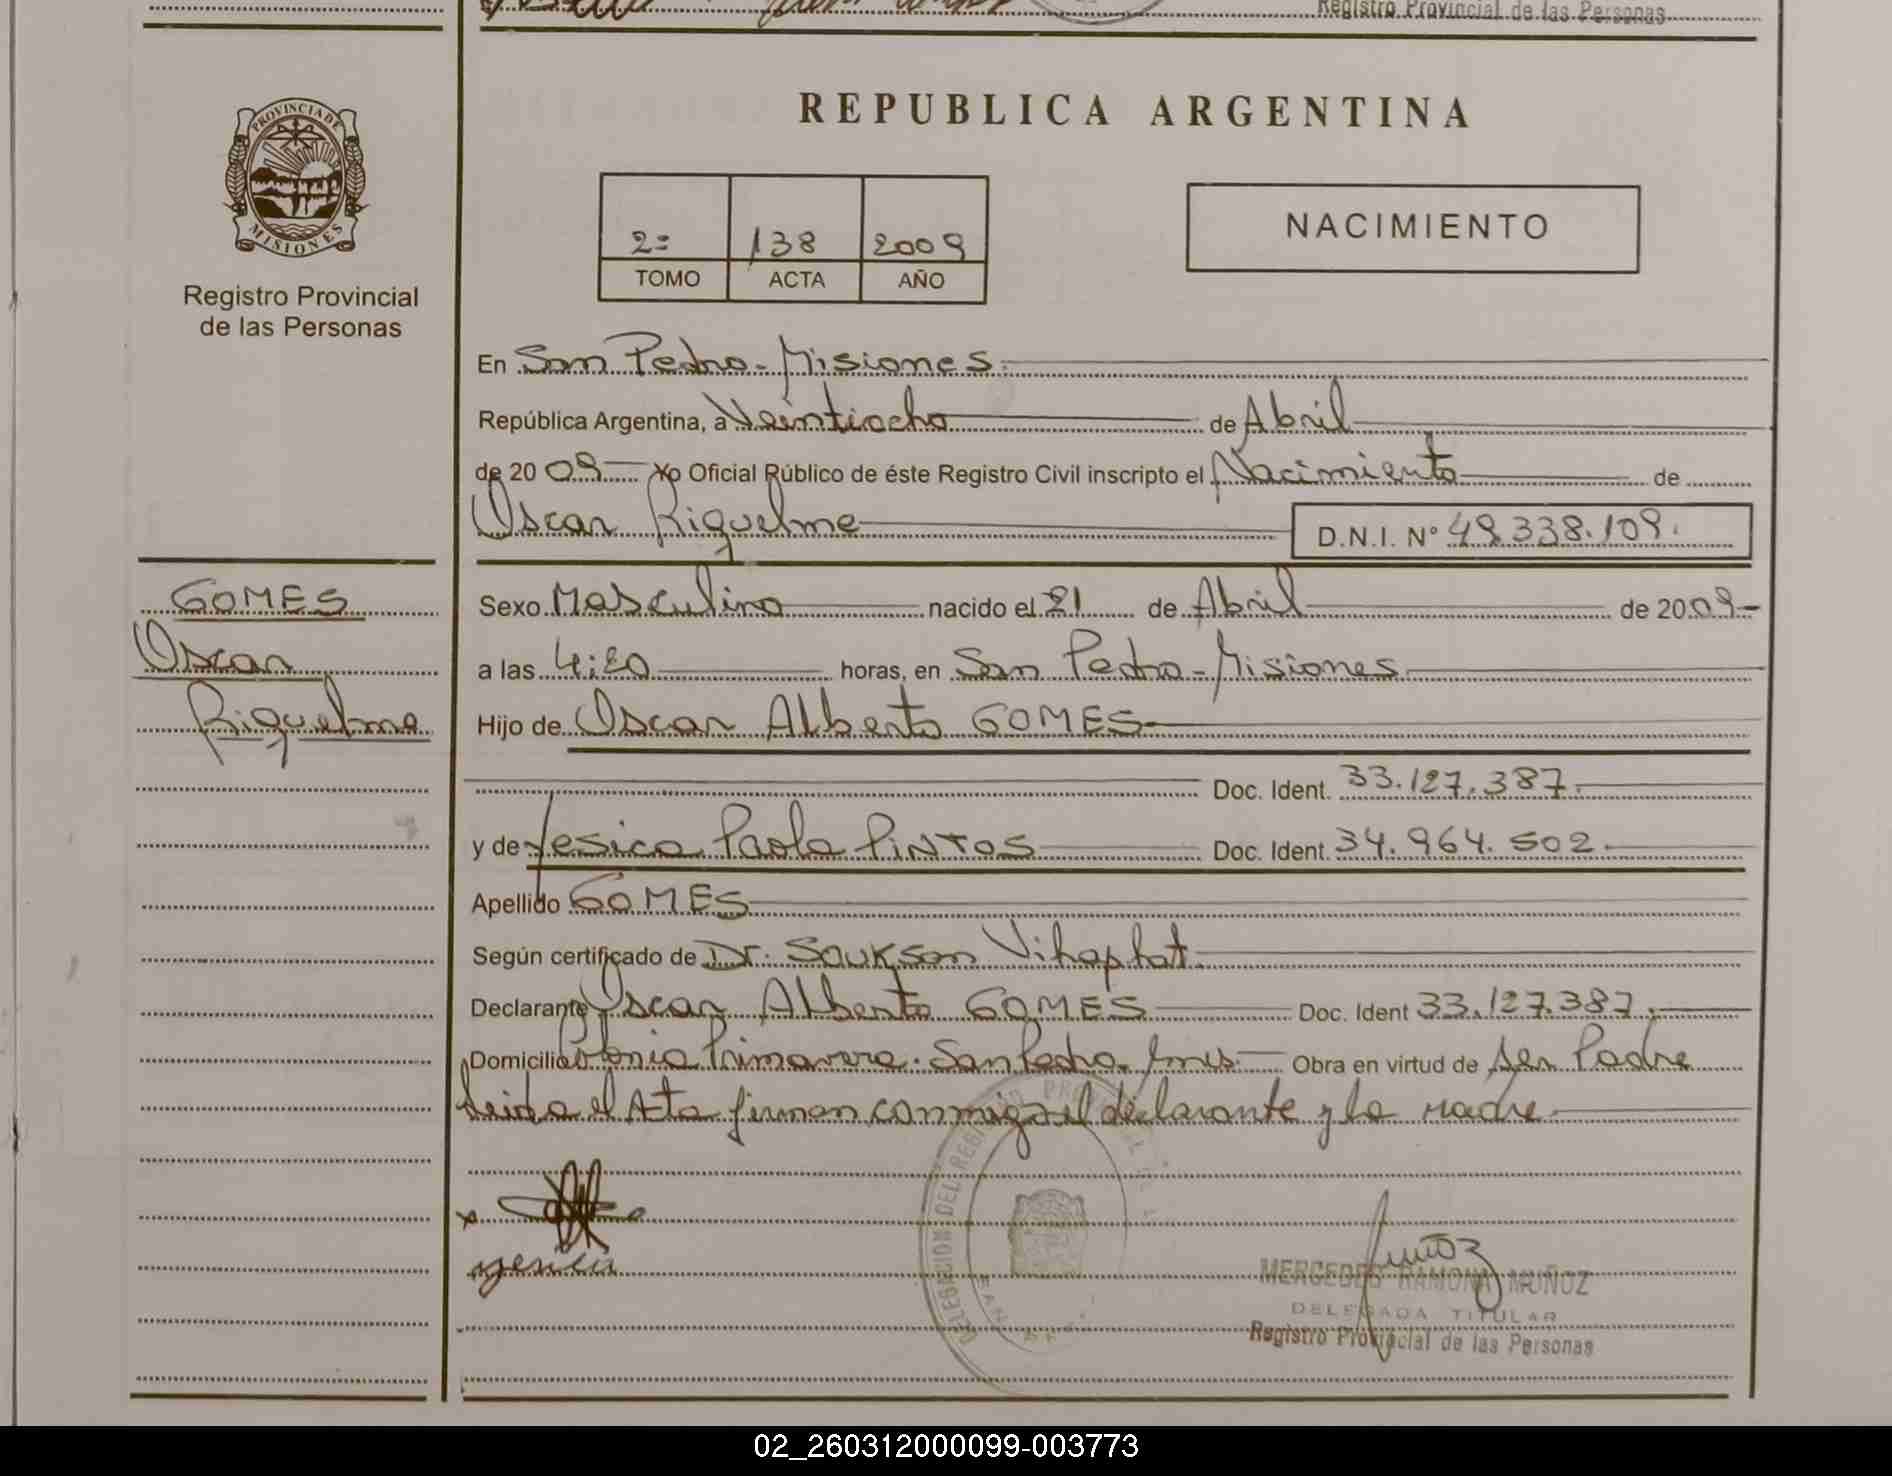 Registro Provincial de las Personas
PROVINCIA DE
MISIONES
Registro Provincial
de las Personas
REPUBLICA ARGENTINA
2= 138 2009
TOMO ACTA AÑO
NACIMIENTO
En San Pedro - Misiones.
República Argentina, a Veintiocho de Abril
de 20 09 Yo Oficial Público de éste Registro Civil inscripto el Nacimiento de
Oscar Riquelme D.N.I. Nº 49.338.109.
GOMES
Oscar
Riquelme
Sexo Masculino nacido el 21 de Abril de 2009-
a las 4:20 horas, en San Pedro - Misiones
Hijo de Oscar Alberto GOMES
Doc. Ident. 33.127.387.
y de Yesica Paola PINTOS Doc. Ident. 34.964.502.
Apellido GOMES
Según certificado de Dr. Soukson Vihaphat.
Declarante Oscar Alberto GOMES Doc. Ident 33.127.387.
Domicilio Colonia Primavera. San Pedro. Mnes. Obra en virtud de ser Padre
Leida el Acta firman conmigo el declarante y la madre
DELEGACION DEL REGISTRO
yesica
Muñoz
MERCEDES RAMONA MUÑOZ
DELEGADA TITULAR
Registro Provincial de las Personas
02_260312000099-003773